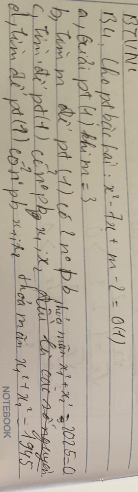 BTVN:
B4, Cho pt bậc hai: x² - 7x + m - 2 = 0 (1)
a, Giải pt (1) khi m = 3
b, Tìm m để pt (1) có 2 no pb thỏa mãn x₁² + x₂² = 2025
c, Tìm để pt (1) có no pb x₁, x₂ đều là các số nguyên
d, Tìm để pt (1) có no pb x₁, x₂ thỏa mãn x₁² + x₂² = 1945
NOTEBOOK